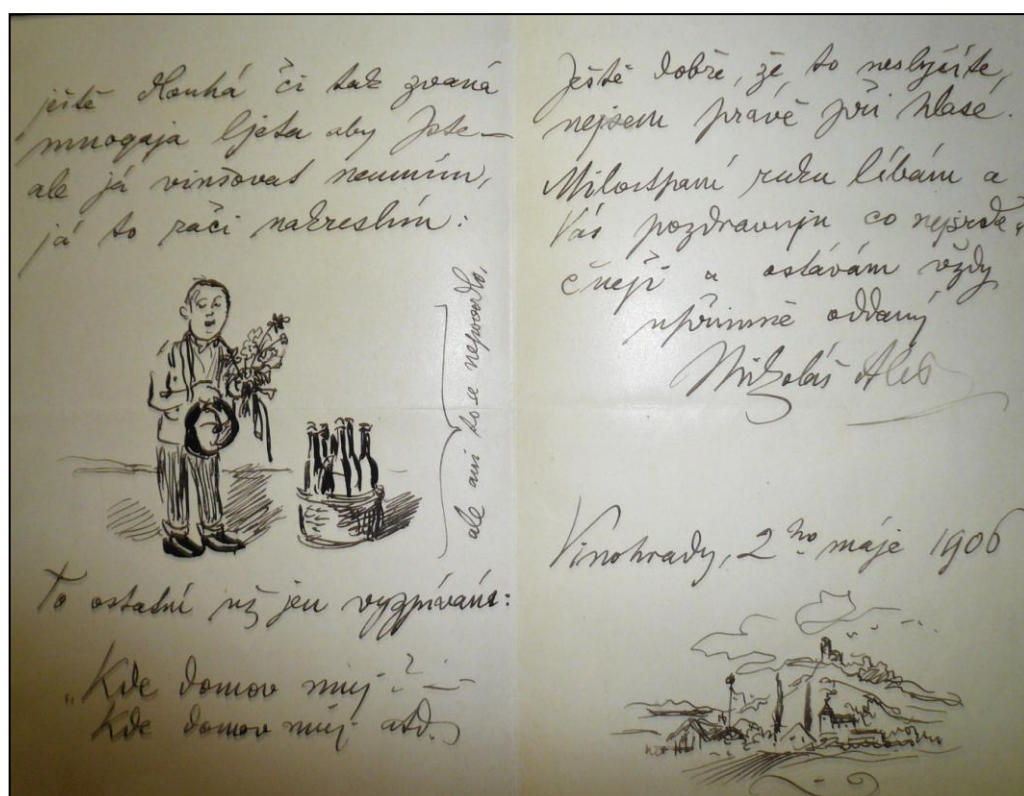 ještě dlouhá či tak zvaná
mnogaja ljeta aby Jste —
ale já vinšovat neumím,
já to ráči nakreslím:
ale ani to se nepovedlo,
To ostatní už jen vyzpívám:
„Kde domov můj? —
Kde domov můj atd.
Ještě dobře, že to neslyšíte,
nejsem právě při hlase.
Milostpaní ruku líbám a
Vás pozdravuju co nejsrde-
čněji a ostávám vždy
upřímně oddaný
Mikoláš Aleš
Vinohrady, 2ho máje 1906